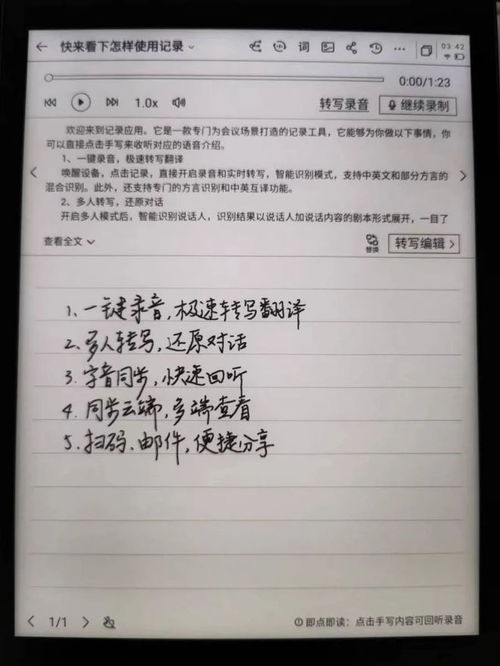 快来看下怎样使用记录
词
03:42
0:00/1:23
1.0x
转写录音 继续录制
欢迎来到记录应用。它是一款专门为会议场景打造的记录工具，它能够为你做以下事情，你
可以直接点击手写来收听对应的语音介绍。
1、一键录音，极速转写翻译
唤醒设备，点击记录，直接开启录音和实时转写，智能识别模式，支持中英文和部分方言的
混合识别。此外，还支持专门的方言识别和中英互译功能。
2、多人转写，还原对话
开启多人模式后，智能识别说话人，识别结果以说话人加说话内容的剧本形式展开，一目了
查看全文 替换 转写编辑
1、一键录音，极速转写翻译
2、多人转写，还原对话
3、字音同步，快速回听
4、同步云端，多端查看
5、扫码、邮件，便捷分享
1/1 即点即读：点击手写内容可回听录音